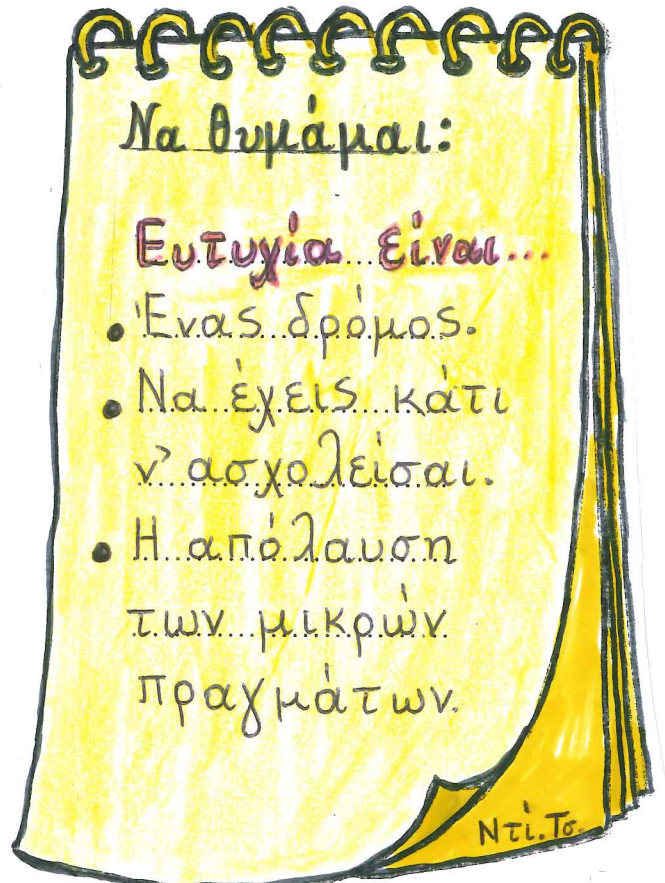 Να θυμάμαι:
Ευτυχία είναι...
• Ένας δρόμος.
• Να έχεις κάτι
ν' ασχολείσαι.
• Η απόλαυση
των μικρών
πραγμάτων.
Ντί. Τσ.